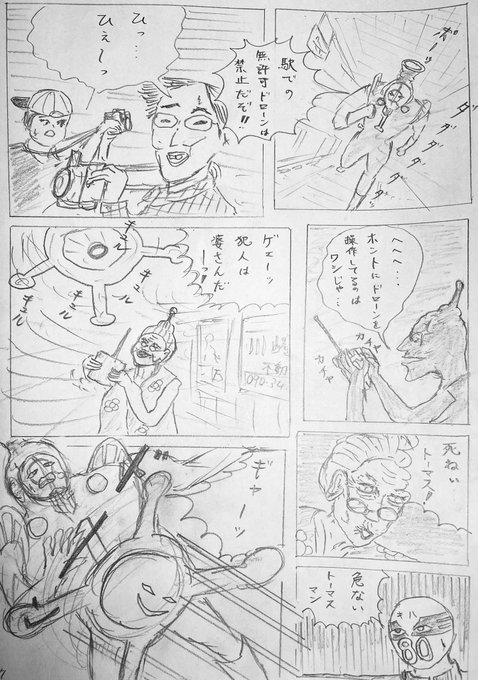 ポーッ
ダダダダダ
駅での
無許可ドローンは
禁止だぞ!!
ひっ…
ひえーっ
へへへ…
ホントにドローンを
操作してるのは
ワシじゃ…
ガチャ
ガチャ
ゲェーッ
犯人は
婆さんだ
ーっ!!
キュル
キュル
キュル
キュル
不動
090-34
死ねい
トーマス!!
ギャーッ
危ない
トーマス
マン
キハ
80
7